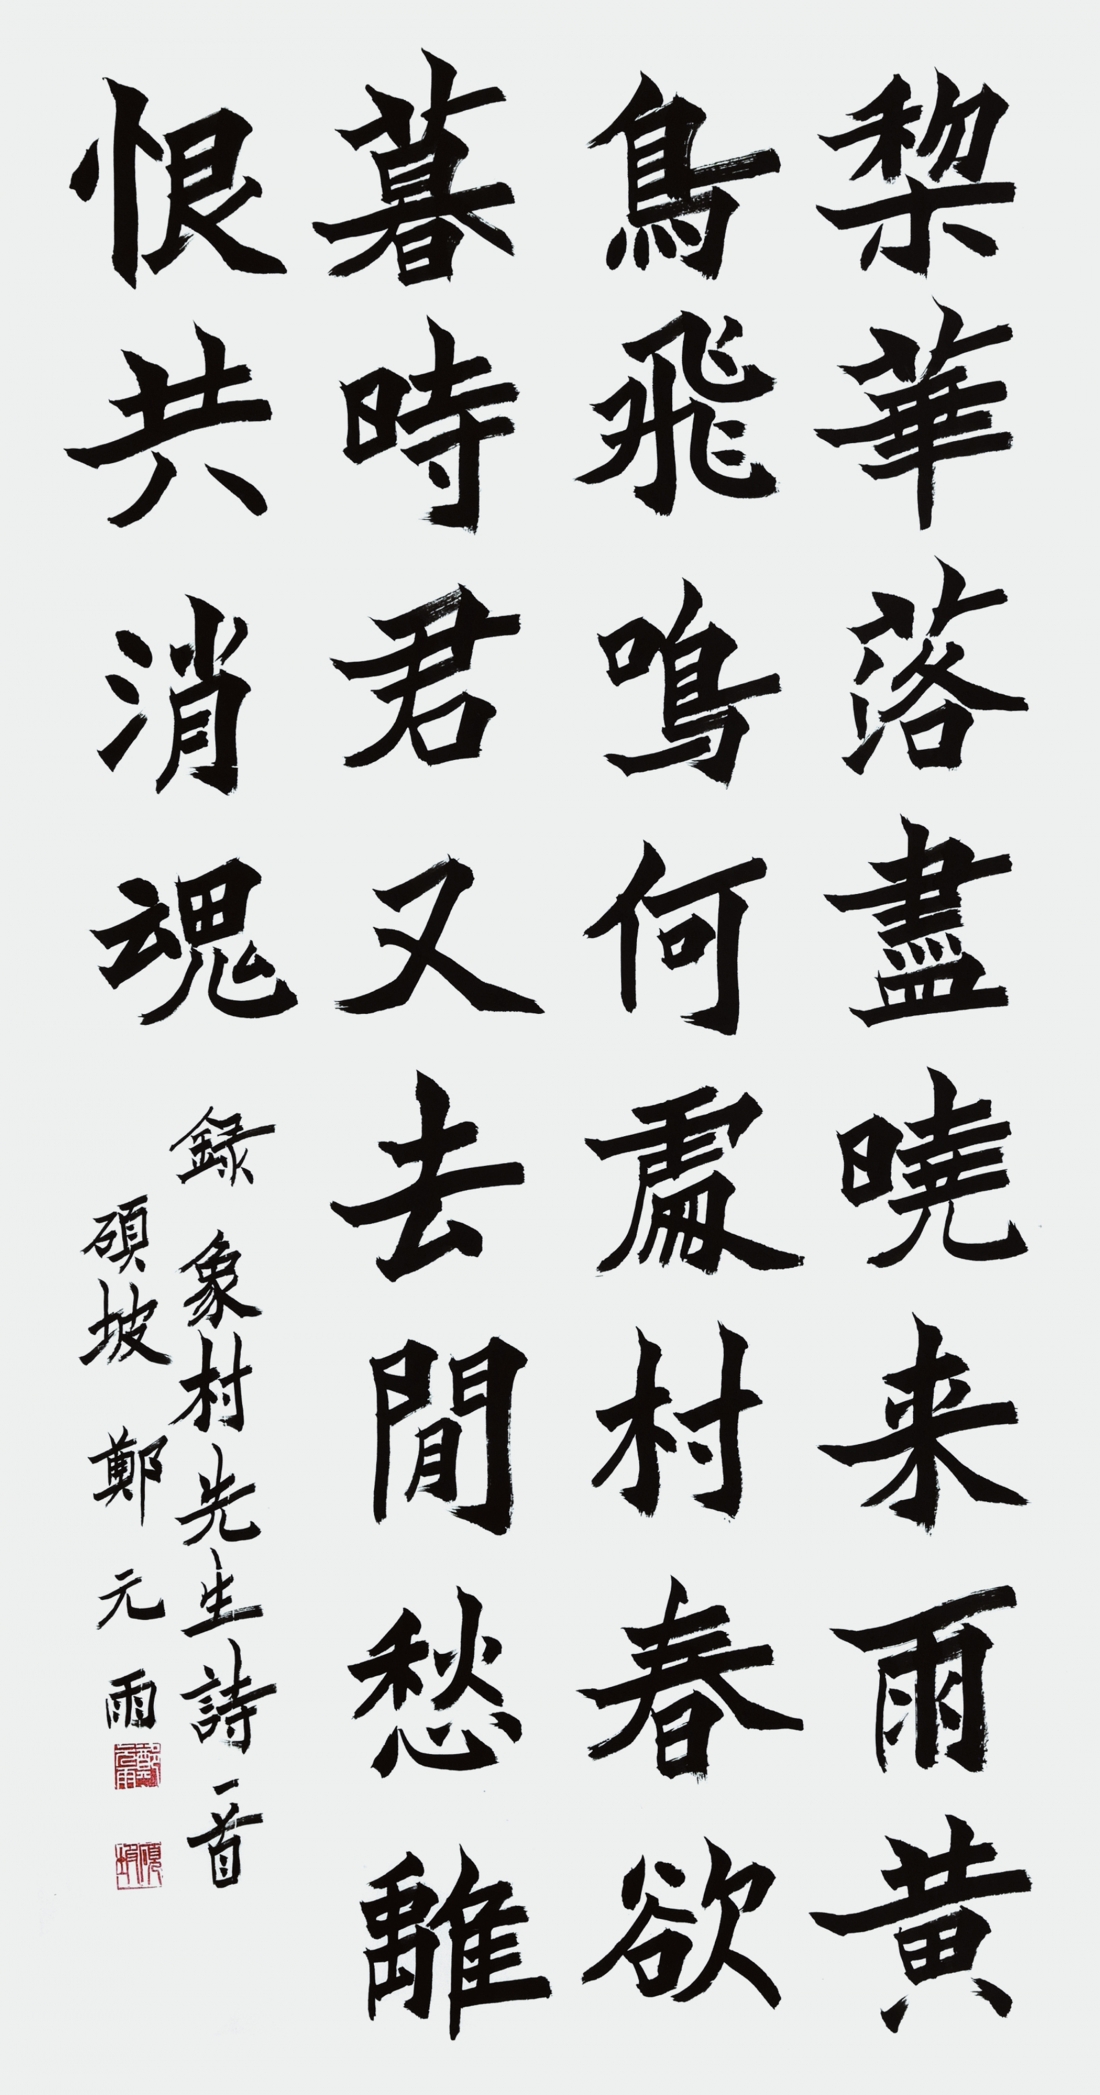 棃華落盡曉来雨黄
鳥飛鳴何處村春欲
暮時君又去閒愁離
恨共消魂
録象村先生詩一首
碩坡鄭元雨
鄭元雨
碩坡